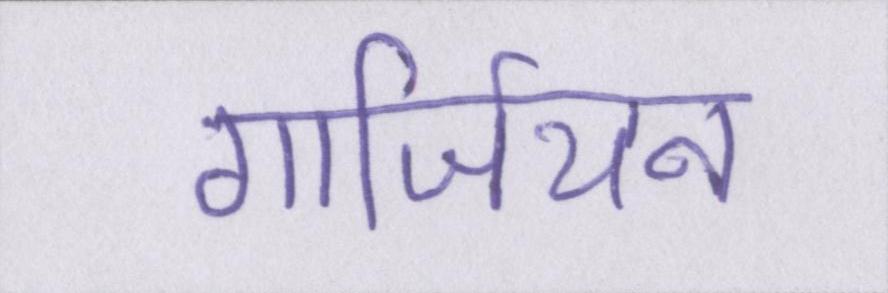 गार्जियन